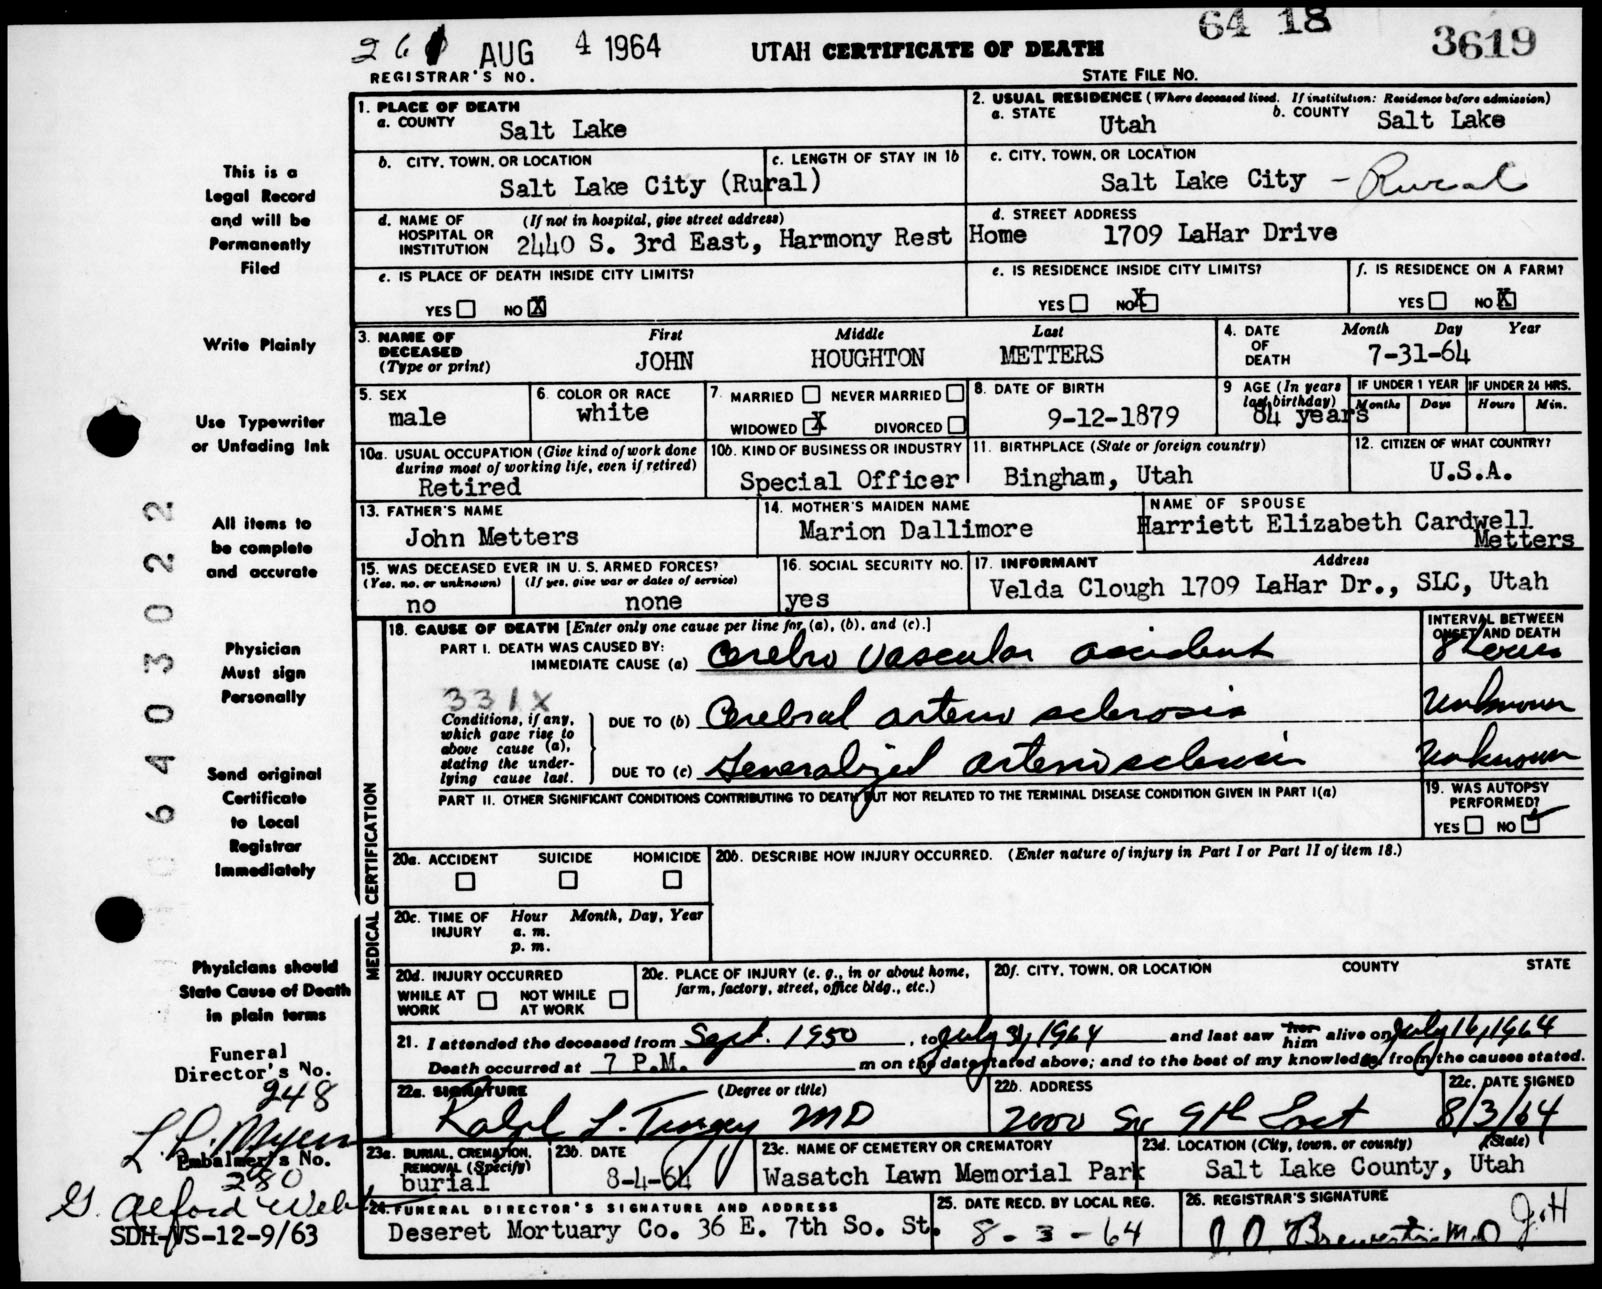 261 AUG 4 1964 UTAH CERTIFICATE OF DEATH 64 18 3619
REGISTRAR'S NO. STATE FILE No.
1. PLACE OF DEATH
a. COUNTY Salt Lake
2. USUAL RESIDENCE (Where deceased lived. If institution: Residence before admission)
a. STATE Utah b. COUNTY Salt Lake
b. CITY, TOWN, OR LOCATION Salt Lake City (Rural)
c. LENGTH OF STAY IN 1b
c. CITY, TOWN, OR LOCATION Salt Lake City - Rural
d. NAME OF HOSPITAL OR INSTITUTION (If not in hospital, give street address)
2440 S. 3rd East, Harmony Rest Home
d. STREET ADDRESS 1709 LaHar Drive
e. IS PLACE OF DEATH INSIDE CITY LIMITS?
YES NO X
e. IS RESIDENCE INSIDE CITY LIMITS?
YES NO X
f. IS RESIDENCE ON A FARM?
YES NO X
3. NAME OF DECEASED (Type or print)
First Middle Last
JOHN HOUGHTON METTERS
4. DATE OF DEATH Month Day Year
7-31-64
5. SEX male
6. COLOR OR RACE white
7. MARRIED NEVER MARRIED
WIDOWED X DIVORCED
8. DATE OF BIRTH 9-12-1879
9 AGE (In years last birthday) 84 years
IF UNDER 1 YEAR Months Days
IF UNDER 24 HRS. Hours Min.
10a. USUAL OCCUPATION (Give kind of work done during most of working life, even if retired)
Retired
10b. KIND OF BUSINESS OR INDUSTRY
Special Officer
11. BIRTHPLACE (State or foreign country)
Bingham, Utah
12. CITIZEN OF WHAT COUNTRY?
U.S.A.
13. FATHER'S NAME
John Metters
14. MOTHER'S MAIDEN NAME
Marion Dallimore
NAME OF SPOUSE
Harriett Elizabeth Cardwell
Metters
15. WAS DECEASED EVER IN U. S. ARMED FORCES?
(Yes, no, or unknown) (If yes, give war or dates of service)
no none
16. SOCIAL SECURITY NO.
yes
17. INFORMANT Address
Velda Clough 1709 LaHar Dr., SLC, Utah
MEDICAL CERTIFICATION
18. CAUSE OF DEATH [Enter only one cause per line for (a), (b), and (c).]
PART I. DEATH WAS CAUSED BY:
IMMEDIATE CAUSE (a) Cerebro Vascular accident
INTERVAL BETWEEN ONSET AND DEATH
8 hours
331X
Conditions, if any, which gave rise to above cause (a), stating the underlying cause last.
DUE TO (b) Cerebral arterio sclerosis Unknown
DUE TO (c) Generalized arteriosclerosis Unknown
PART II. OTHER SIGNIFICANT CONDITIONS CONTRIBUTING TO DEATH BUT NOT RELATED TO THE TERMINAL DISEASE CONDITION GIVEN IN PART I(a)
19. WAS AUTOPSY PERFORMED?
YES NO ✓
20a. ACCIDENT SUICIDE HOMICIDE
20b. DESCRIBE HOW INJURY OCCURRED. (Enter nature of injury in Part I or Part II of item 18.)
20c. TIME OF INJURY Hour Month, Day, Year
a. m.
p. m.
20d. INJURY OCCURRED
WHILE AT WORK NOT WHILE AT WORK
20e. PLACE OF INJURY (e. g., in or about home, farm, factory, street, office bldg., etc.)
20f. CITY, TOWN, OR LOCATION COUNTY STATE
21. I attended the deceased from Sept. 1950, to July 31, 1964 and last saw her him alive on July 16, 1964
Death occurred at 7 P.M. m on the date stated above; and to the best of my knowledge, from the causes stated.
22a. SIGNATURE (Degree or title)
Ralph L. Tingey MD
22b. ADDRESS
2000 So 9th East
22c. DATE SIGNED
8/3/64
23a. BURIAL, CREMATION, REMOVAL (Specify)
burial
23b. DATE
8-4-64
23c. NAME OF CEMETERY OR CREMATORY
Wasatch Lawn Memorial Park
23d. LOCATION (City, town, or county) (State)
Salt Lake County, Utah
24. FUNERAL DIRECTOR'S SIGNATURE AND ADDRESS
Deseret Mortuary Co. 36 E. 7th So. St.
25. DATE RECD. BY LOCAL REG.
8-3-64
26. REGISTRAR'S SIGNATURE
M.D.
This is a
Legal Record
and will be
Permanently
Filed
Write Plainly
Use Typewriter
or Unfading Ink
All items to
be complete
and accurate
Physician
Must sign
Personally
Send original
Certificate
to Local
Registrar
Immediately
Physicians should
State Cause of Death
in plain terms
Funeral
Director's No.
248
Embalmer's No.
280
G. Alford Webb
SDH-VS-12-9/63